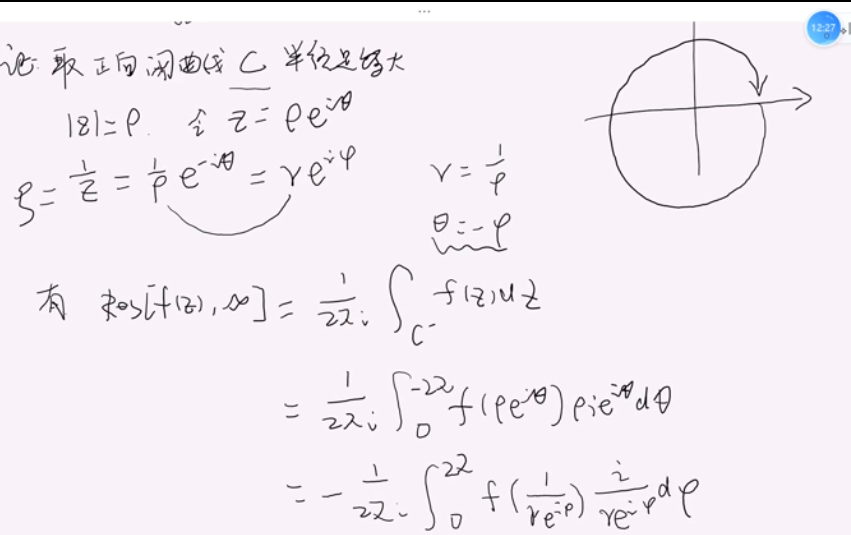 证: 取正向闭曲线 C 半径足够大
|z|=ρ. 令 z = ρe^{iθ}
ξ = 1/z = 1/ρ e^{-iθ} = re^{iφ}
r = 1/ρ
θ = -φ
有 Res[f(z), ∞] = 1/2πi ∫_{C^-} f(z)dz
= 1/2πi ∫_0^{-2π} f(ρe^{iθ}) ρie^{iθ}dθ
= - 1/2πi ∫_0^{2π} f(1/re^{iφ}) i/re^{iφ} dφ
12:27